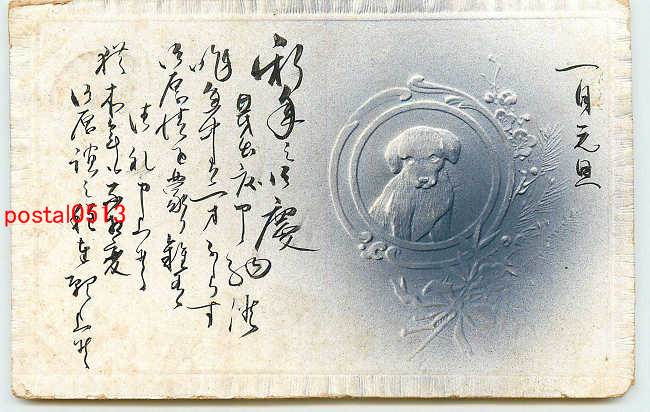 一月元旦
新年之御慶
目出度申納候
昨年中は一方ならず
御厚情を蒙り難有
御礼申上候
猶本年も不相変
御厚誼之程奉願上候
postal0513